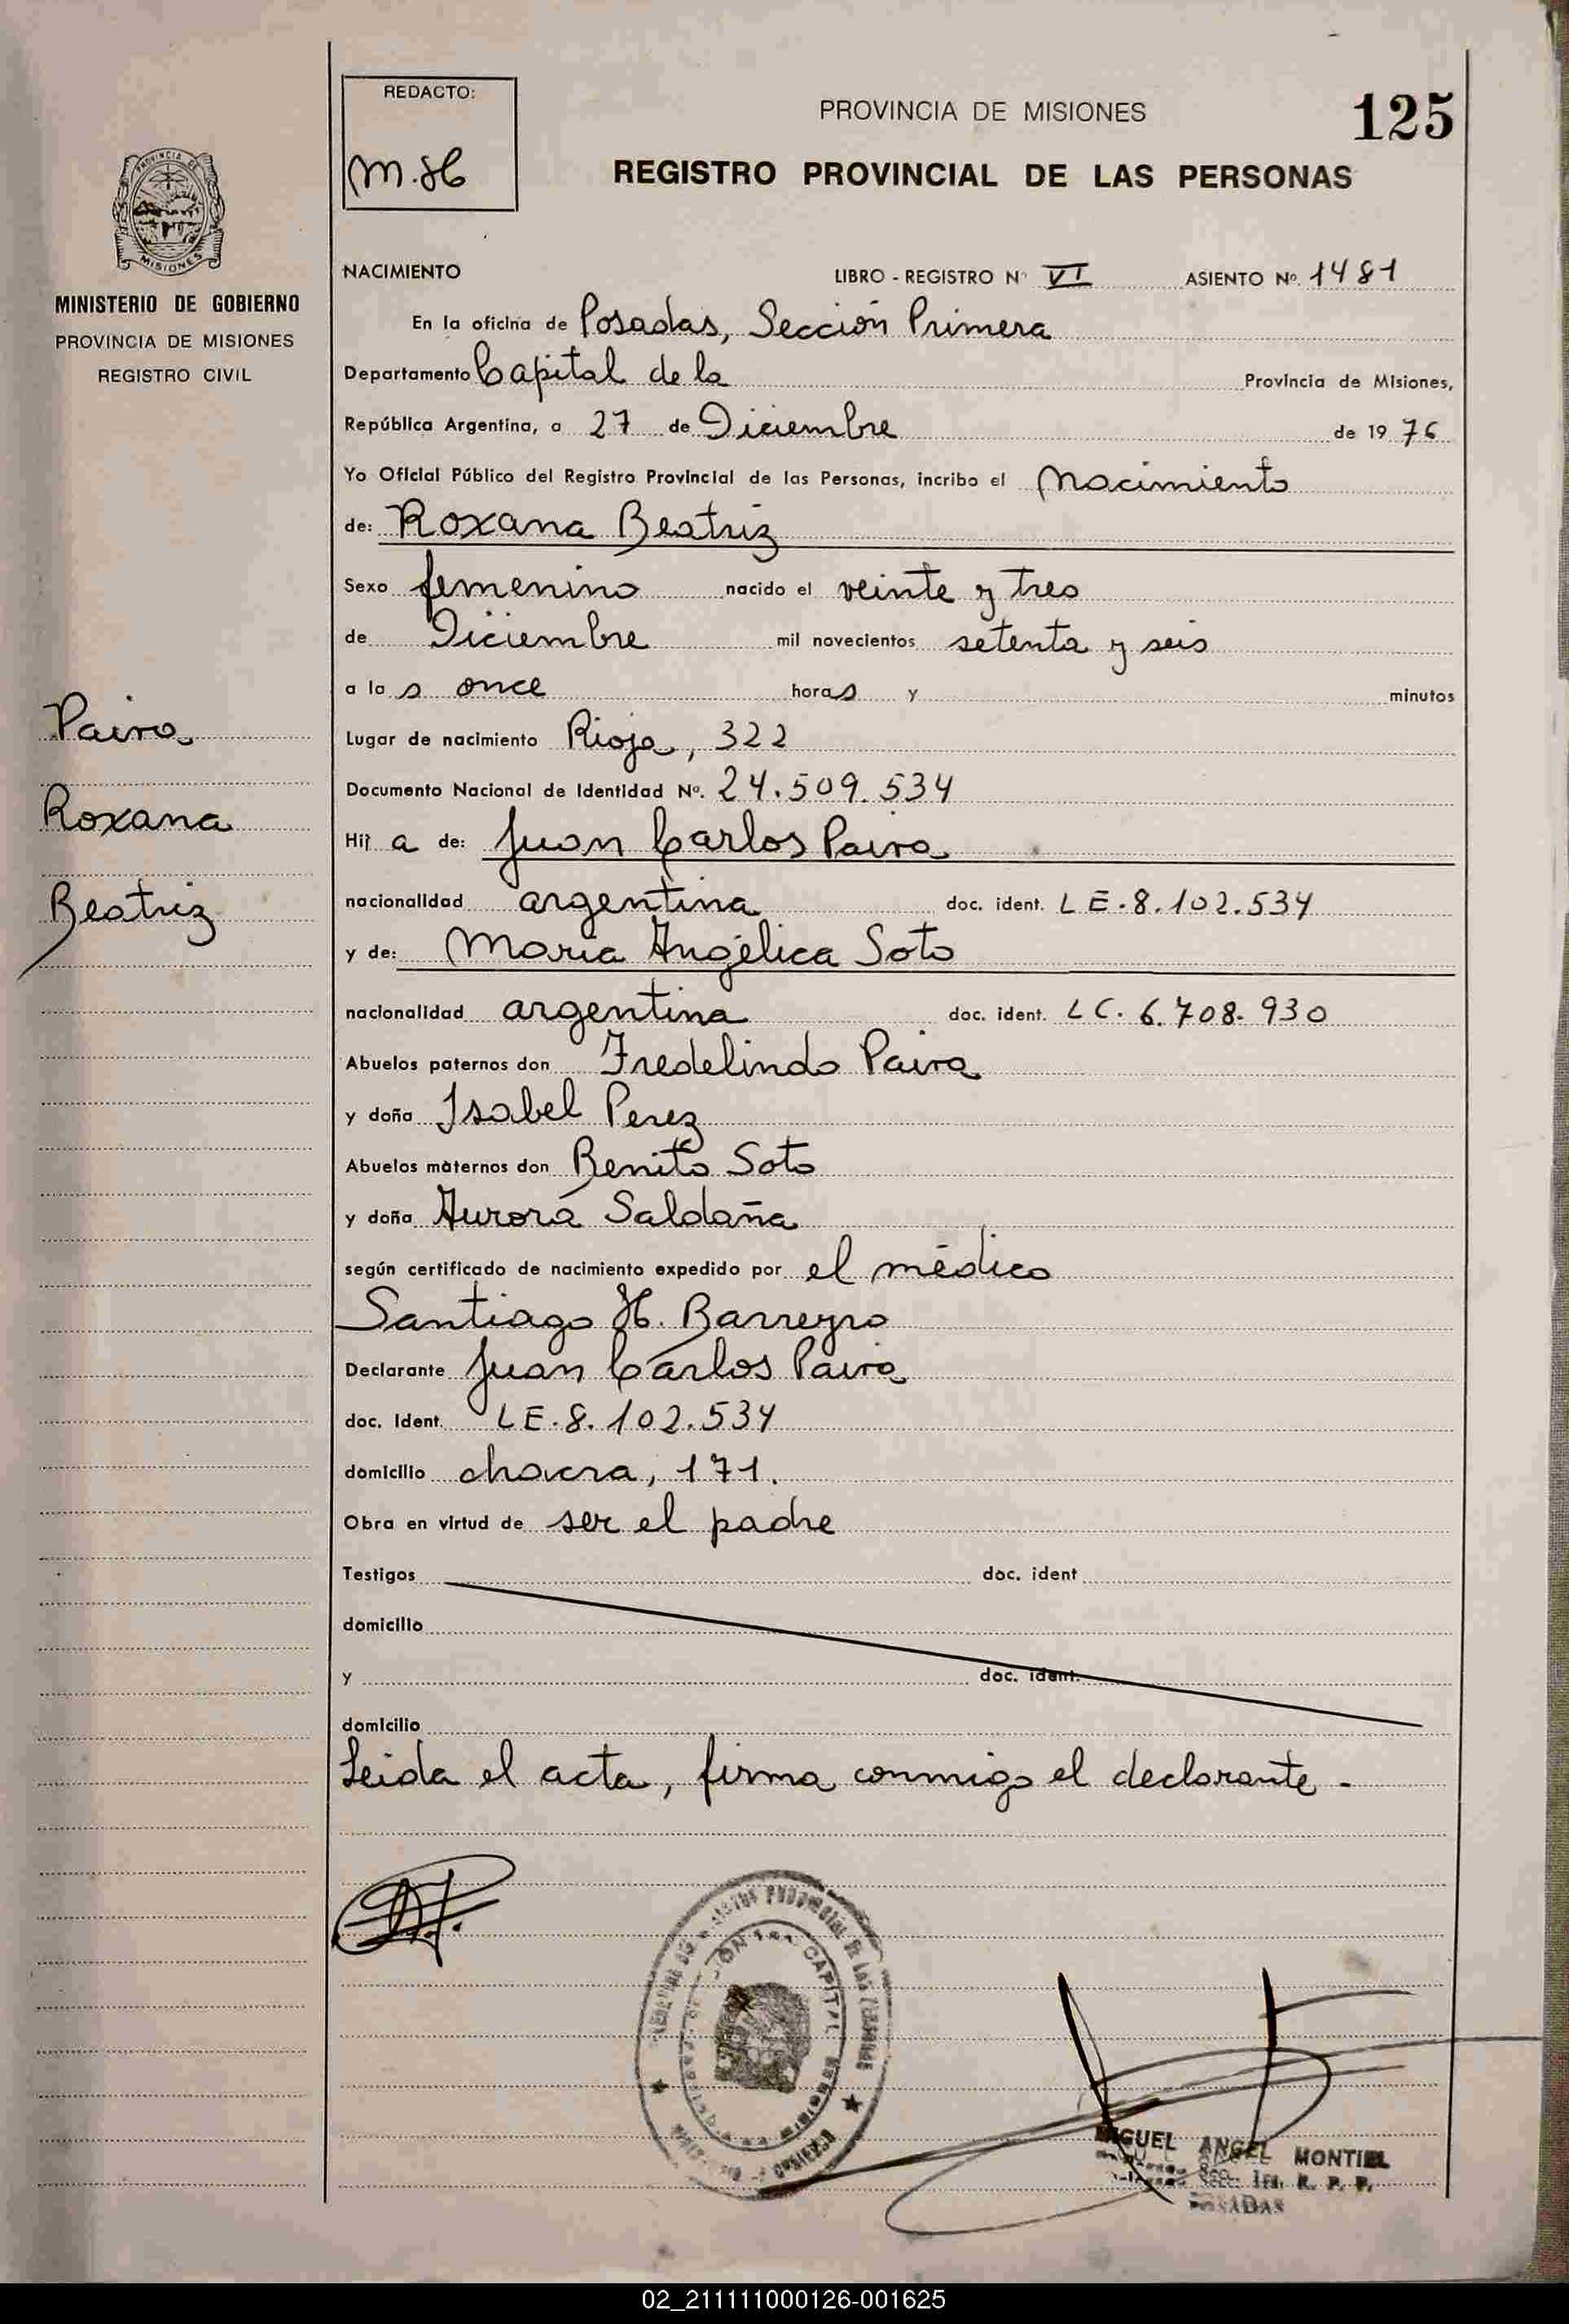 REDACTO:
M.H
PROVINCIA DE MISIONES
125
REGISTRO PROVINCIAL DE LAS PERSONAS
PROVINCIA DE
MISIONES
MINISTERIO DE GOBIERNO
PROVINCIA DE MISIONES
REGISTRO CIVIL
Paiva
Roxana
Beatriz
NACIMIENTO LIBRO - REGISTRO Nº VI ASIENTO Nº. 1481
En la oficina de Posadas, Sección Primera
Departamento Capital de la Provincia de Misiones,
República Argentina, a 27 de Diciembre de 1976
Yo Oficial Público del Registro Provincial de las Personas, incribo el Nacimiento
de: Roxana Beatriz
Sexo femenino nacido el veinte y tres
de Diciembre mil novecientos setenta y seis
a las once horas y minutos
Lugar de nacimiento Rioja, 322
Documento Nacional de Identidad Nº. 24.509.534
Hija de: Juan Carlos Paiva
nacionalidad argentina doc. ident. LE.8.102.534
y de: María Angélica Soto
nacionalidad argentina doc. ident. LC. 6.708.930
Abuelos paternos don Fredelindo Paiva
y doña Isabel Perez
Abuelos màternos don Benito Soto
y doña Aurora Saldaña
según certificado de nacimiento expedido por el médico
Santiago H. Barreyro
Declarante Juan Carlos Paiva
doc. Ident. LE.8.102.534
domicilio chacra, 171.
Obra en virtud de ser el padre
Testigos doc. ident
domicilio
y doc. ident.
domicilio
Leida el acta, firma conmigo el declarante -
CAPITAL
MIGUEL ANGEL MONTIEL
R. P. P.
POSADAS
02_211111000126-001625